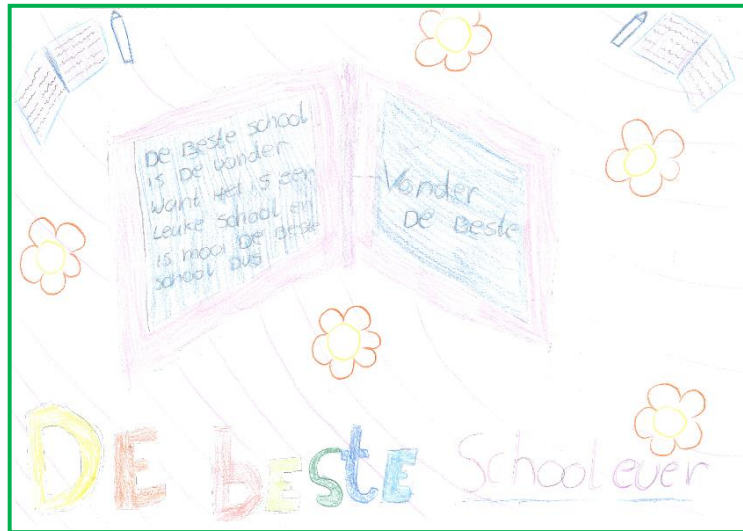 De Beste school
is De vonder
want Het is een
Leuke school en
is mooi De Beste
school Dus
Vonder
De Beste
DE bESTE School ever